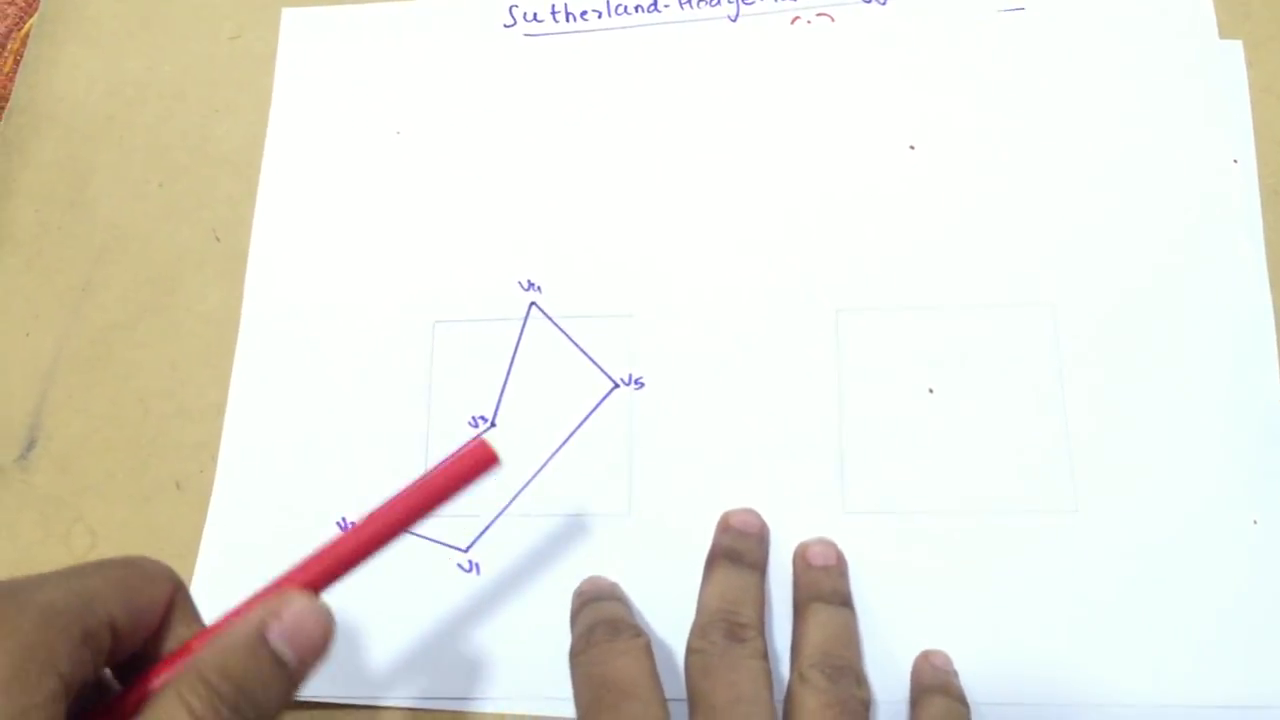 Sutherland-
V4
V5
V3
V2
V1